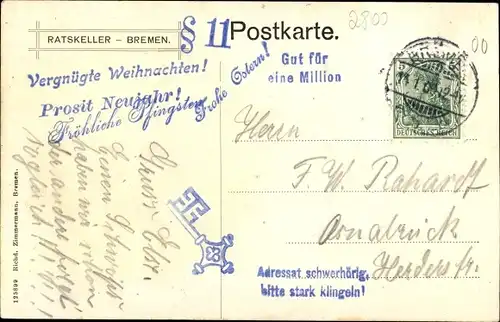 RATSKELLER – BREMEN.
§ 11
Postkarte.
2800
00
Vergnügte Weihnachten!
Prosit Neujahr!
Fröhliche Pfingsten
Frohe Ostern!
Gut für
eine Million
DEUTSCHES REICH
Herrn
F. W. Rahardt
Osnabrück
Herderstr.
Adressat schwerhörig,
bitte stark klingeln!
Einen
haben wir schon
der andere folgt
125699 Richd. Zimmermann, Bremen.